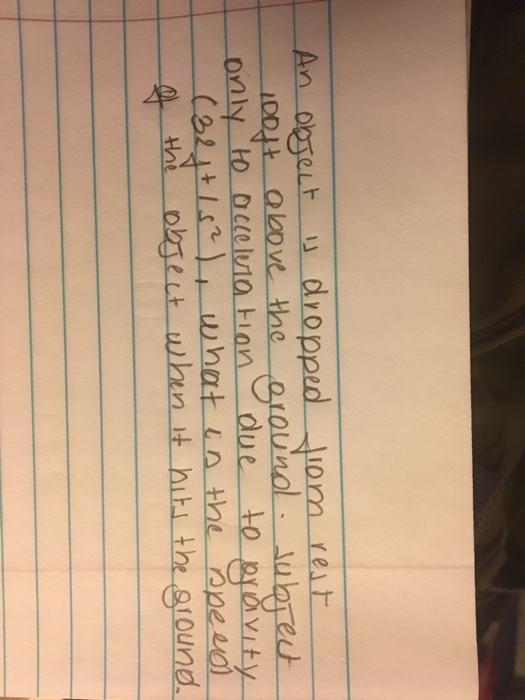 An object is dropped from rest
100ft above the ground. Subject
only to acceleration due to gravity
(32ft/s²), what is the speed
of the object when it hits the ground.